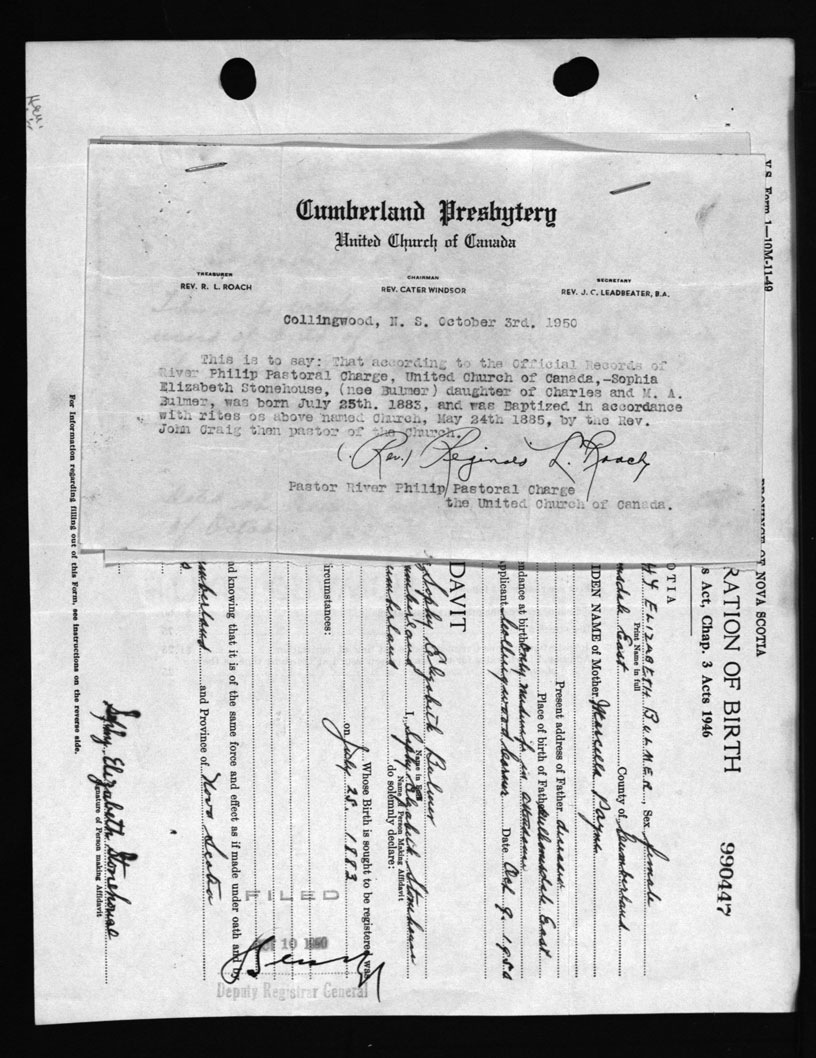 Cumberland Presbytery
United Church of Canada
TREASURER
REV. R. L. ROACH
CHAIRMAN
REV. CATER WINDSOR
SECRETARY
REV. J. C. LEADBEATER, B.A.
Collingwood, N. S. October 3rd. 1950
This is to say: That according to the Official Records of
River Philip Pastoral Charge, United Church of Canada,-Sophia
Elizabeth Stonehouse, (nee Bulmer) daughter of Charles and M. A.
Bulmer, was born July 25th. 1883, and was Baptized in accordance
with rites os above named Church, May 24th 1885, by the Rev.
John Craig then pastor of the Church.
(Rev.) Reginald L. Roach
Pastor River Philip Pastoral Charge
the United Church of Canada.
V.S. Form 1—10M-11-49
PROVINCE OF NOVA SCOTIA
RATION OF BIRTH
990447
s Act, Chap. 3 Acts 1946
OTIA
HY ELIZABETH BULMER, Sex female
Print Name in full
msdale East County of Cumberland
IDEN NAME of Mother Payne
Present address of Father deceased
Place of birth of Father East
ndance at birth only midwife in attendance
pplicant Collingwood Corner Date Oct 9. 1950
DAVIT
Sophy Elizabeth Bulmer
Name in full
umberland I, Sophy Elizabeth Stonehouse
Name of Person Making Affidavit
umberland do solemnly declare:
Whose Birth is sought to be registered was
on July 25. 1883
ircumstances:
nd knowing that it is of the same force and effect as if made under oath and by
umberland and Province of Nova Scotia
FILED
10 1950
Deputy Registrar General
Sophy Elizabeth Stonehouse
Signature of Person making Affidavit
For Information regarding filling out of this Form, see instructions on the reverse side.